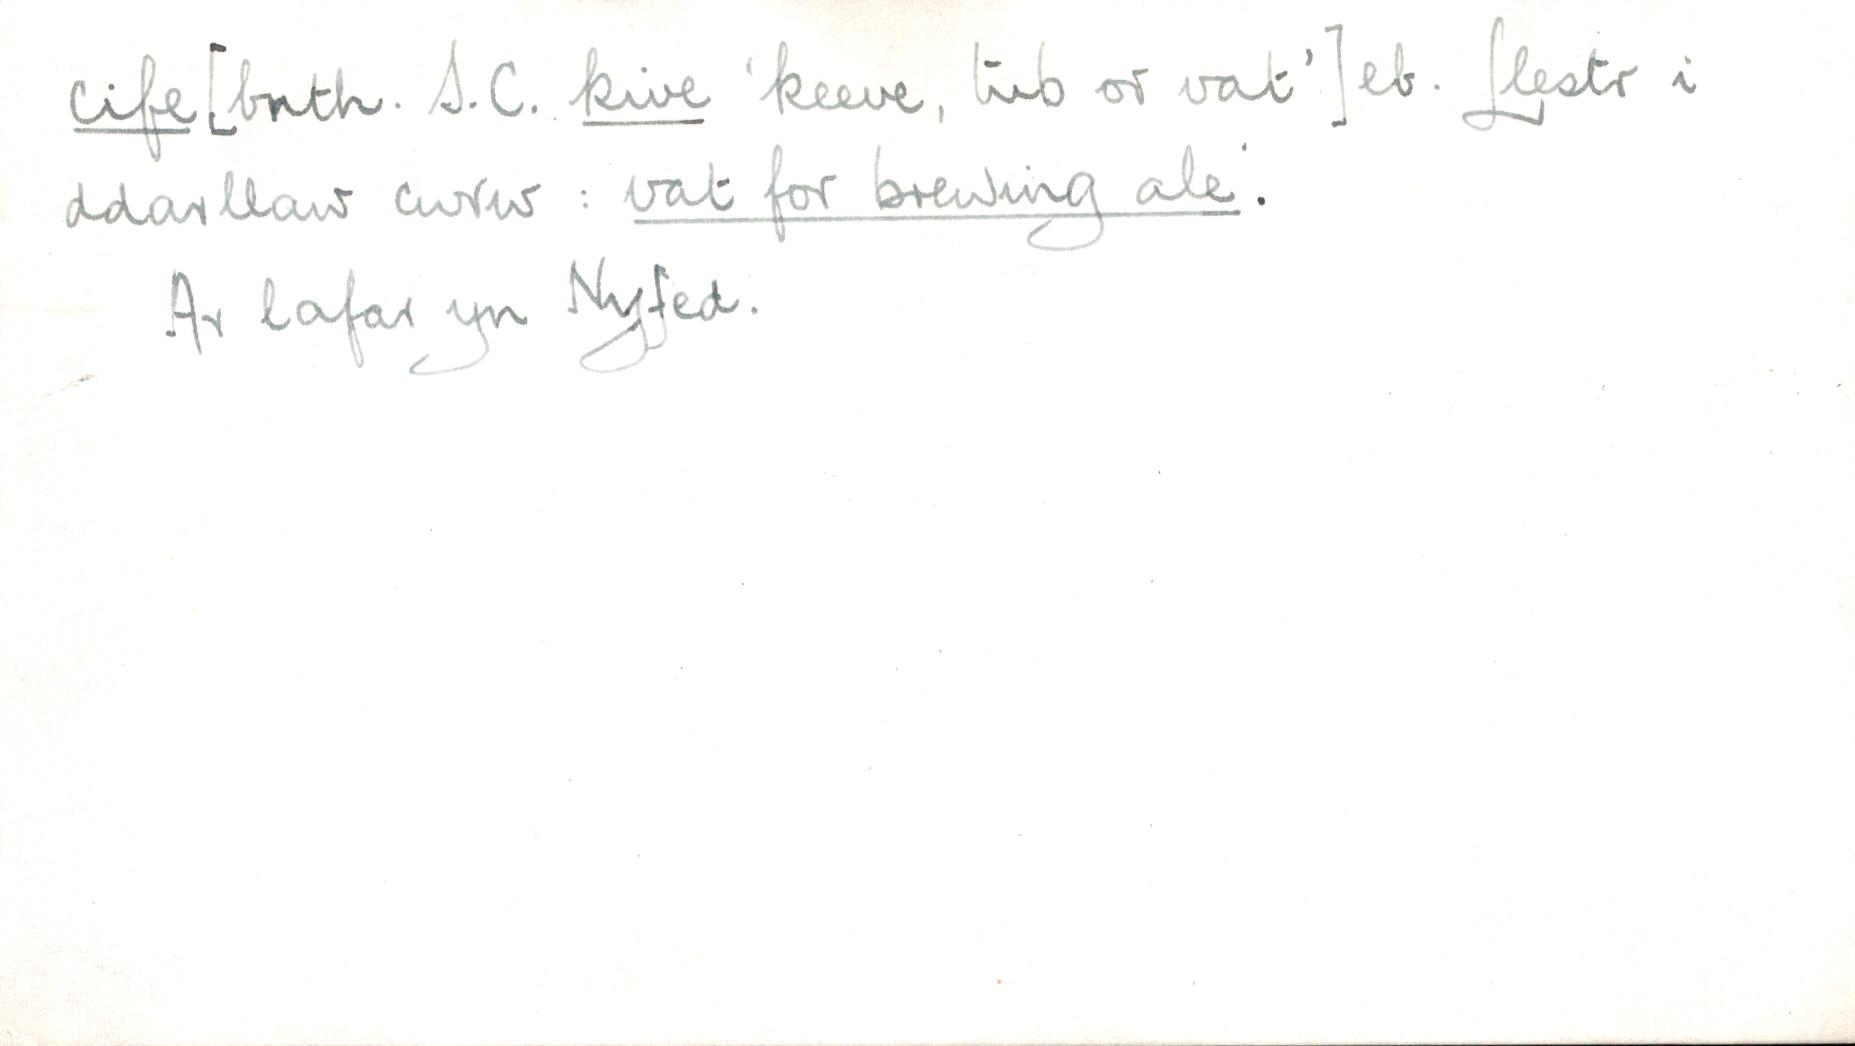 cife [bnth. S.C. kive 'keeve, tub or vat'] eb. Llestr i
ddarllaw cwrw : vat for brewing ale'.
Ar lafar yn Nyfed.